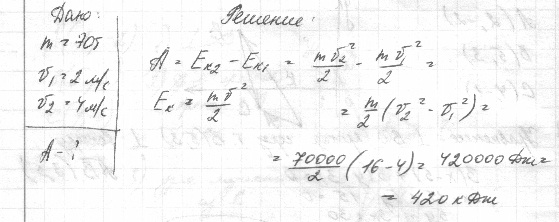 Дано:
m = 70т
v₁ = 2 м/с
v₂ = 4 м/с
A - ?
Решение:
A = Eк₂ - Eк₁ = mv₂²/2 - mv₁²/2 =
Eк = mv²/2
= m/2 (v₂² - v₁²) =
= 70000/2 (16 - 4) = 420000 Дж =
= 420 кДж